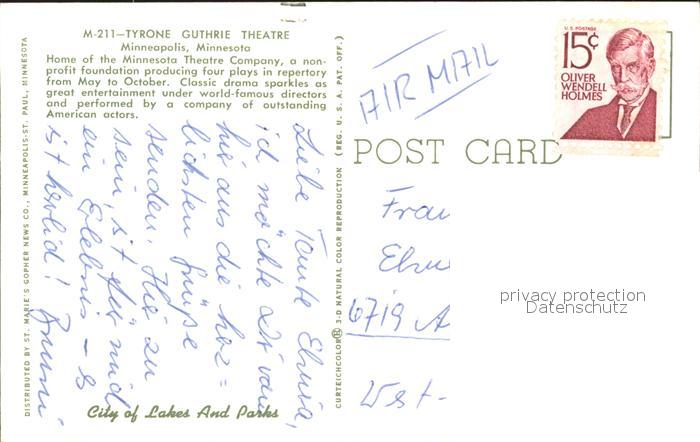 M-211—TYRONE GUTHRIE THEATRE
Minneapolis, Minnesota
Home of the Minnesota Theatre Company, a non-
profit foundation producing four plays in repertory
from May to October. Classic drama sparkles as
great entertainment under world-famous directors
and performed by a company of outstanding
American actors.
Liebe Tante
ich möchte Dir von
hier aus die herz=
lichsten Grüße
senden. Hier zu
sein, ist für mich
ein Erlebnis – es
ist herrlich!
City of Lakes And Parks
DISTRIBUTED BY ST. MARIE'S GOPHER NEWS CO., MINNEAPOLIS-ST. PAUL, MINNESOTA
CURTEICHCOLOR® 3-D NATURAL COLOR REPRODUCTION (REG. U.S.A. PAT. OFF.)
AIR MAIL
U.S. POSTAGE
15¢
OLIVER
WENDELL
HOLMES
POST CARD
Frau
6719 A
West-
privacy protection
Datenschutz